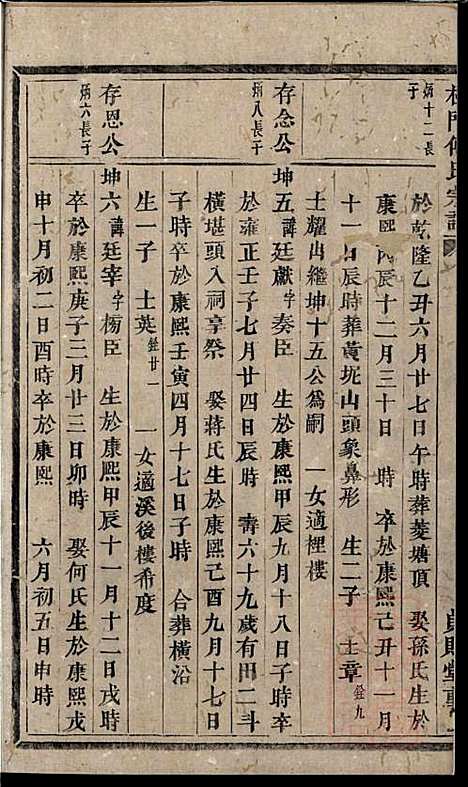 炳十二長
子
於乾隆乙丑六月廿七日午時葬菱塘頂　娶孫氏生於
康熙丙辰十二月三十日　時　卒於康熙己丑十一月
十一日辰時葬黃坭山頭象鼻形　生二子　士章銓九
士耀出繼坤十五公爲嗣　一女適裡樓
存念公
炳八長子
坤五諱廷獻字奏臣　生於康熙甲辰九月十八日子時卒
於雍正壬子七月廿四日辰時　壽六十九歲有田二斗
橫堪頭入祠享祭　娶蔣氏生於康熙己酉九月十七日
子時卒於康熙壬寅四月十七日子時　合葬橫沿
生一子　士英銓廿一　一女適溪後樓希度
存恩公
炳六長子
坤六諱廷宰字楊臣　生於康熙甲辰十一月十二日戌時
卒於康熙庚子三月廿三日卯時　娶何氏生於康熙戊
申十月初二日酉時卒於康熙　六月初五日申時